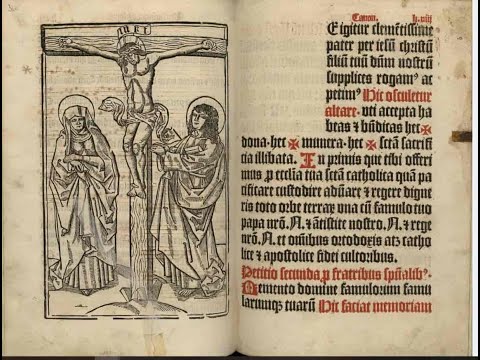 INRI
Canon.
E igitur clementissime
pater per iesū christū
filiū tuū dūm nostrū
supplices rogamꝰ ac
petimꝰ Hic osculetur
altare. vti accepta ha
beas ⁊ bn̄dicas hec ✠
dona. hec ✠ munera. hec ✠ sctā sacrifi
cia illibata. In primis que tibi offeri
mus ꝓ ecclia tua sctā catholica quā pa
cificare custodire adunare ⁊ regere digne
ris toto orbe terraꝝ vna cū famulo tuo
papa nrō. N. ⁊ antistite nostro. N. ⁊ re
ge nrō. N. et omībus ortodoxis atqꝫ catholice
⁊ apostolice fidei cultoribus.
Petitio secunda ꝓ fratribus spūalibꝰ
Memento domine famulorum famu
larumqꝫ tuarū Hic faciat memoriam